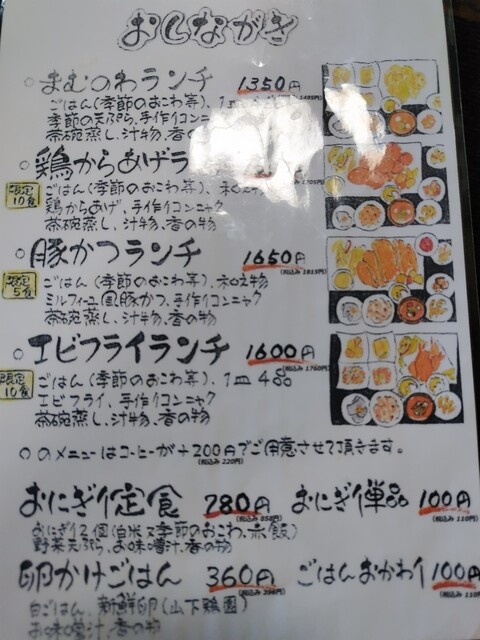 おしながき
○まむのわランチ 1350円
(税込み1485円)
ごはん(季節のおこわ等)、1皿
季節の天ぷら、手作りコンニ
茶碗蒸し、汁物、香の
○鶏からあげラ
限定10食
ごはん(季節のおこわ等)、和え物
鶏からあげ、手作りコンニャク
茶碗蒸し、汁物、香の物
○豚かつランチ 1650円
(税込み1815円)
限定5食
ごはん(季節のおこわ等)、和え物
ミルフィーユ風豚かつ、手作りコンニャク
茶碗蒸し、汁物、香の物
○エビフライランチ 1600円
(税込み1760円)
限定10食
ごはん(季節のおこわ等)、1皿4品
エビフライ、手作りコンニャク
茶碗蒸し、汁物、香の物
○のメニューはコーヒーが+200円でご用意させて頂きます。
(税込み220円)
おにぎり定食 780円 おにぎり単品 100円
(税込み858円) (税込み110円)
おにぎり2個(白米又季節のおこわ、赤飯)
野菜天ぷら、お味噌汁、香の物
卵かけごはん 360円 ごはんおかわり 100円
(税込み396円) (税込み110円)
白ごはん、新鮮卵(山下鶏園)
お味噌汁、香の物